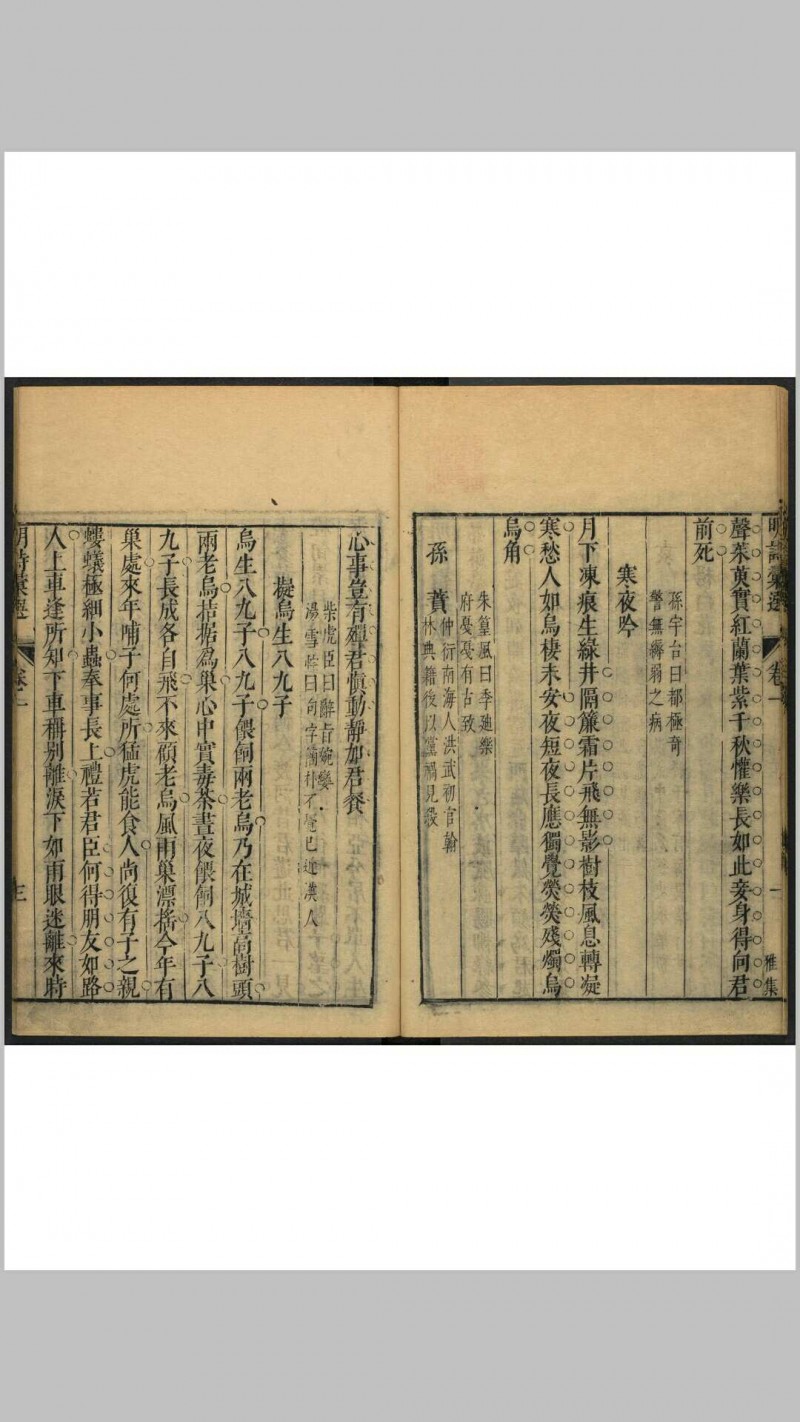 明詩彙選 卷一 一 雅集
聲茱萸實紅蘭葉紫千秋懽樂長如此妾身得向君
前死
孫宇台曰都極奇
警無孱弱之病
寒夜吟
月下凍痕生綠井隔簾霜片飛無影樹枝風息轉凝
寒愁人如烏棲未安夜短夜長應獨覺熒熒殘燭烏
烏角
朱篁風曰季廸樂
府憂憂有古致
孫蕡
仲衍南海人洪武初官翰
林典籍後以黨禍見殺
心事豈有殫君慎動靜加君餐
柴虎臣曰辭旨婉孌
擬烏生八九子
烏生八九子八九子偎伺兩老烏乃在城墻高樹頭
兩老烏拮据為巢心中實毒荼晝夜偎伺八九子八
九子長成各自飛不來顧老烏風雨巢漂搖今年有
巢處來年哺子何處所猛虎能食人尚復有子之親
螻蟻極細小蟲奉事長上禮若君臣何得朋友如路
人上車逢所知下車稱别離淚下如雨眼迷離來時
卷一 三